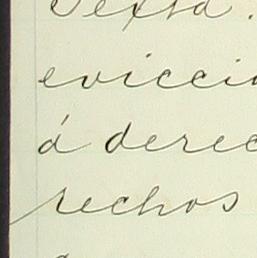 Sexta.
evicció
á derec
rechos